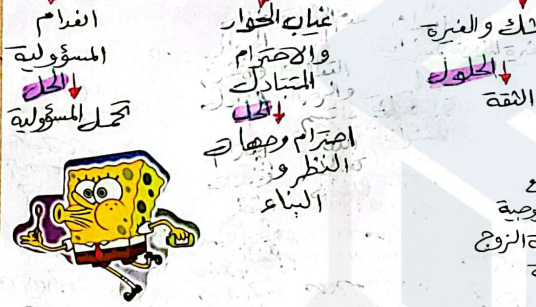 الشك والغيرة
الحلول
الثقة
وصية
الزوج
غياب الحوار
والاحترام
المتبادل
الحل
احترام وجهات
النظر و
البناء
انعدام
المسؤولية
الحل
تحمل المسؤولية